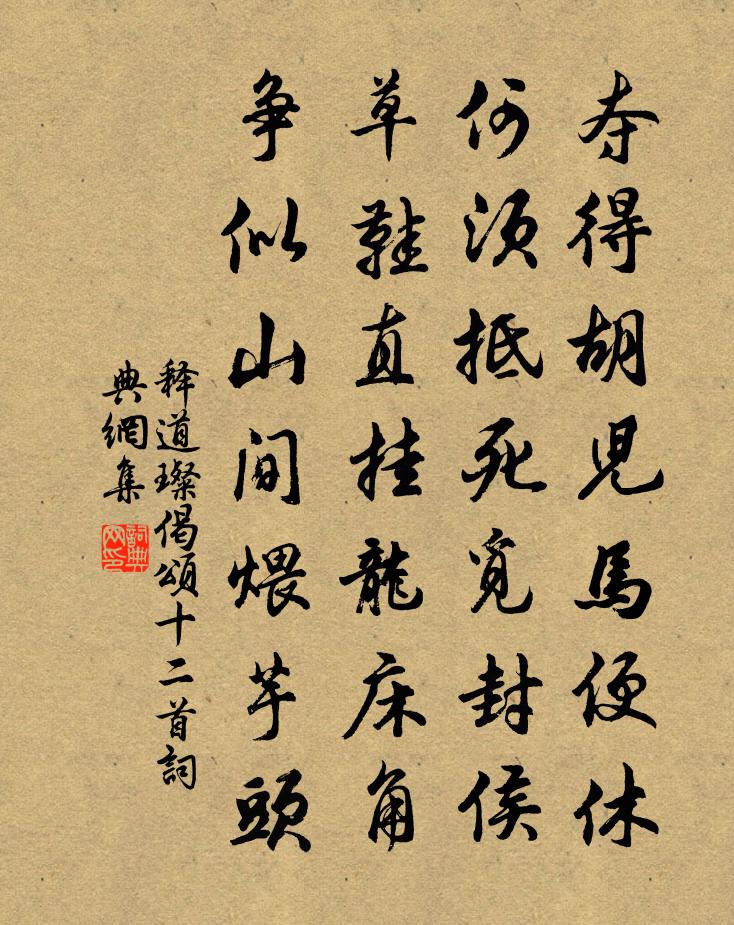 夺得胡児馬便休
何須抵死覓封侯
草鞋直挂龍床角
争似山間煨芋頭
释道璨偈頌十二首詞
典網集
詞典
网印